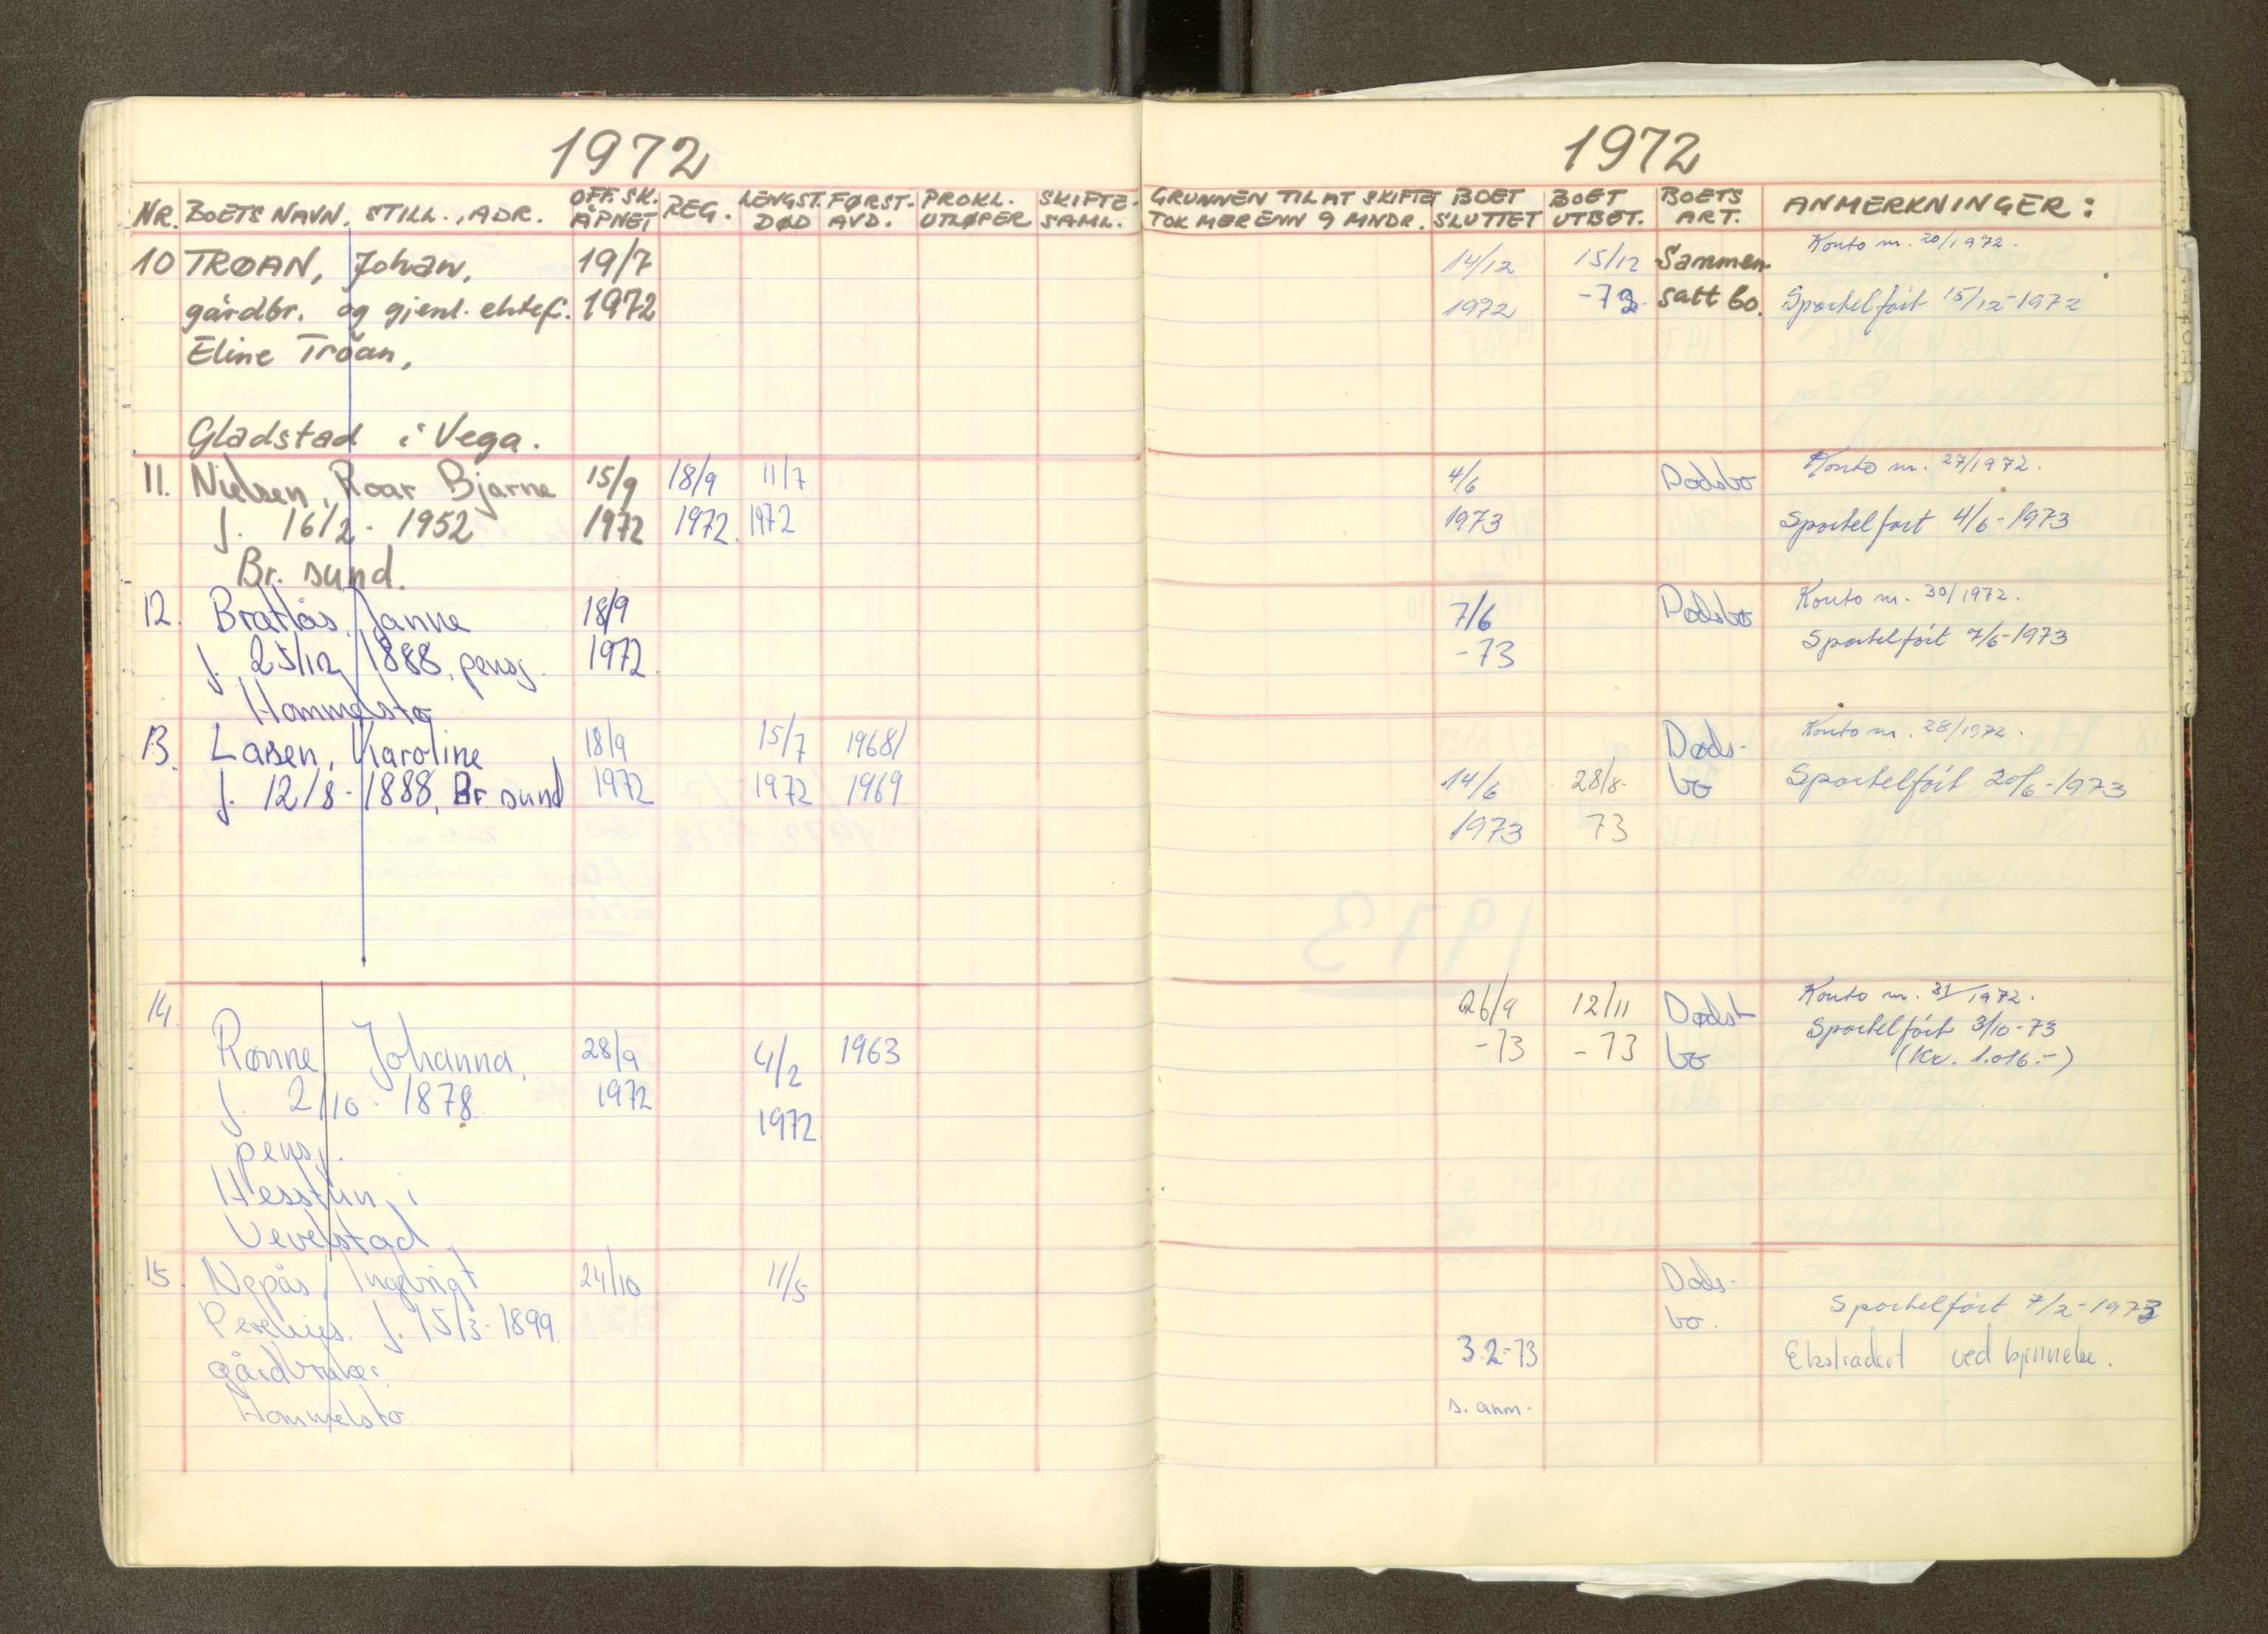 1972
NR. BOETS NAVN, STILL., ADR. OFF. SK. ÅPNET REG. LENGST. DØD FØRST. AVD. PROKL. UTLØPER SKIFTE- SAML.
10 TRØAN, Johan, 19/7
gårdbr. og gjenl. ektef. 1972
Eline Trøan,
Gladstad i Vega.
11. Nielsen, Roar Bjarne 15/9 18/9 11/7
f. 16/2 - 1952 1972 1972. 1972
Br. sund.
12. Brattås, Janna 18/9
f. 25/12 1888, pensj. 1972.
Hommelstø
13. Larsen, Karoline 18/9 15/7 1968/
f. 12/8 - 1888, Br sund 1972 1972 1969
14.
Rønne, Johanna, 28/9 4/2 1963
f. 2/10 - 1878. 1972 1972
pensj.
Hesstun, i
Vevelstad,
15. Nepås, Ingebrigt 24/10 11/5
f. 15/3 - 1899.
gårdbruker,
Hommelstø
1972
GRUNNEN TIL AT SKIFTE TOK MER ENN 9 MNDR. BOET SLUTTET BOET UTBET. BOETS ART. ANMERKNINGER:
Konto nr. 20/1972.
14/12 15/12 Sammen-
1972 -72. satt bo. Sportelført 15/12-1972
4/6 Dødsbo Konto nr. 27/1972.
1973 Sportelført 4/6-1973
7/6 Dødsbo Konto nr. 30/1972.
-73 Sportelført 7/6-1973
Døds- Konto nr. 28/1972.
14/6 28/8- bo Sportelført 20/6-1973
1973 73
26/9 12/11 Døds- Konto nr. 31/1972.
-73 -73 bo Sportelført 3/10-73
(Kr. 1.016.-)
Døds-
bo. Sportelført 7/2-1973
3.2-73 Ekstradert ved kjennelse.
s. anm.